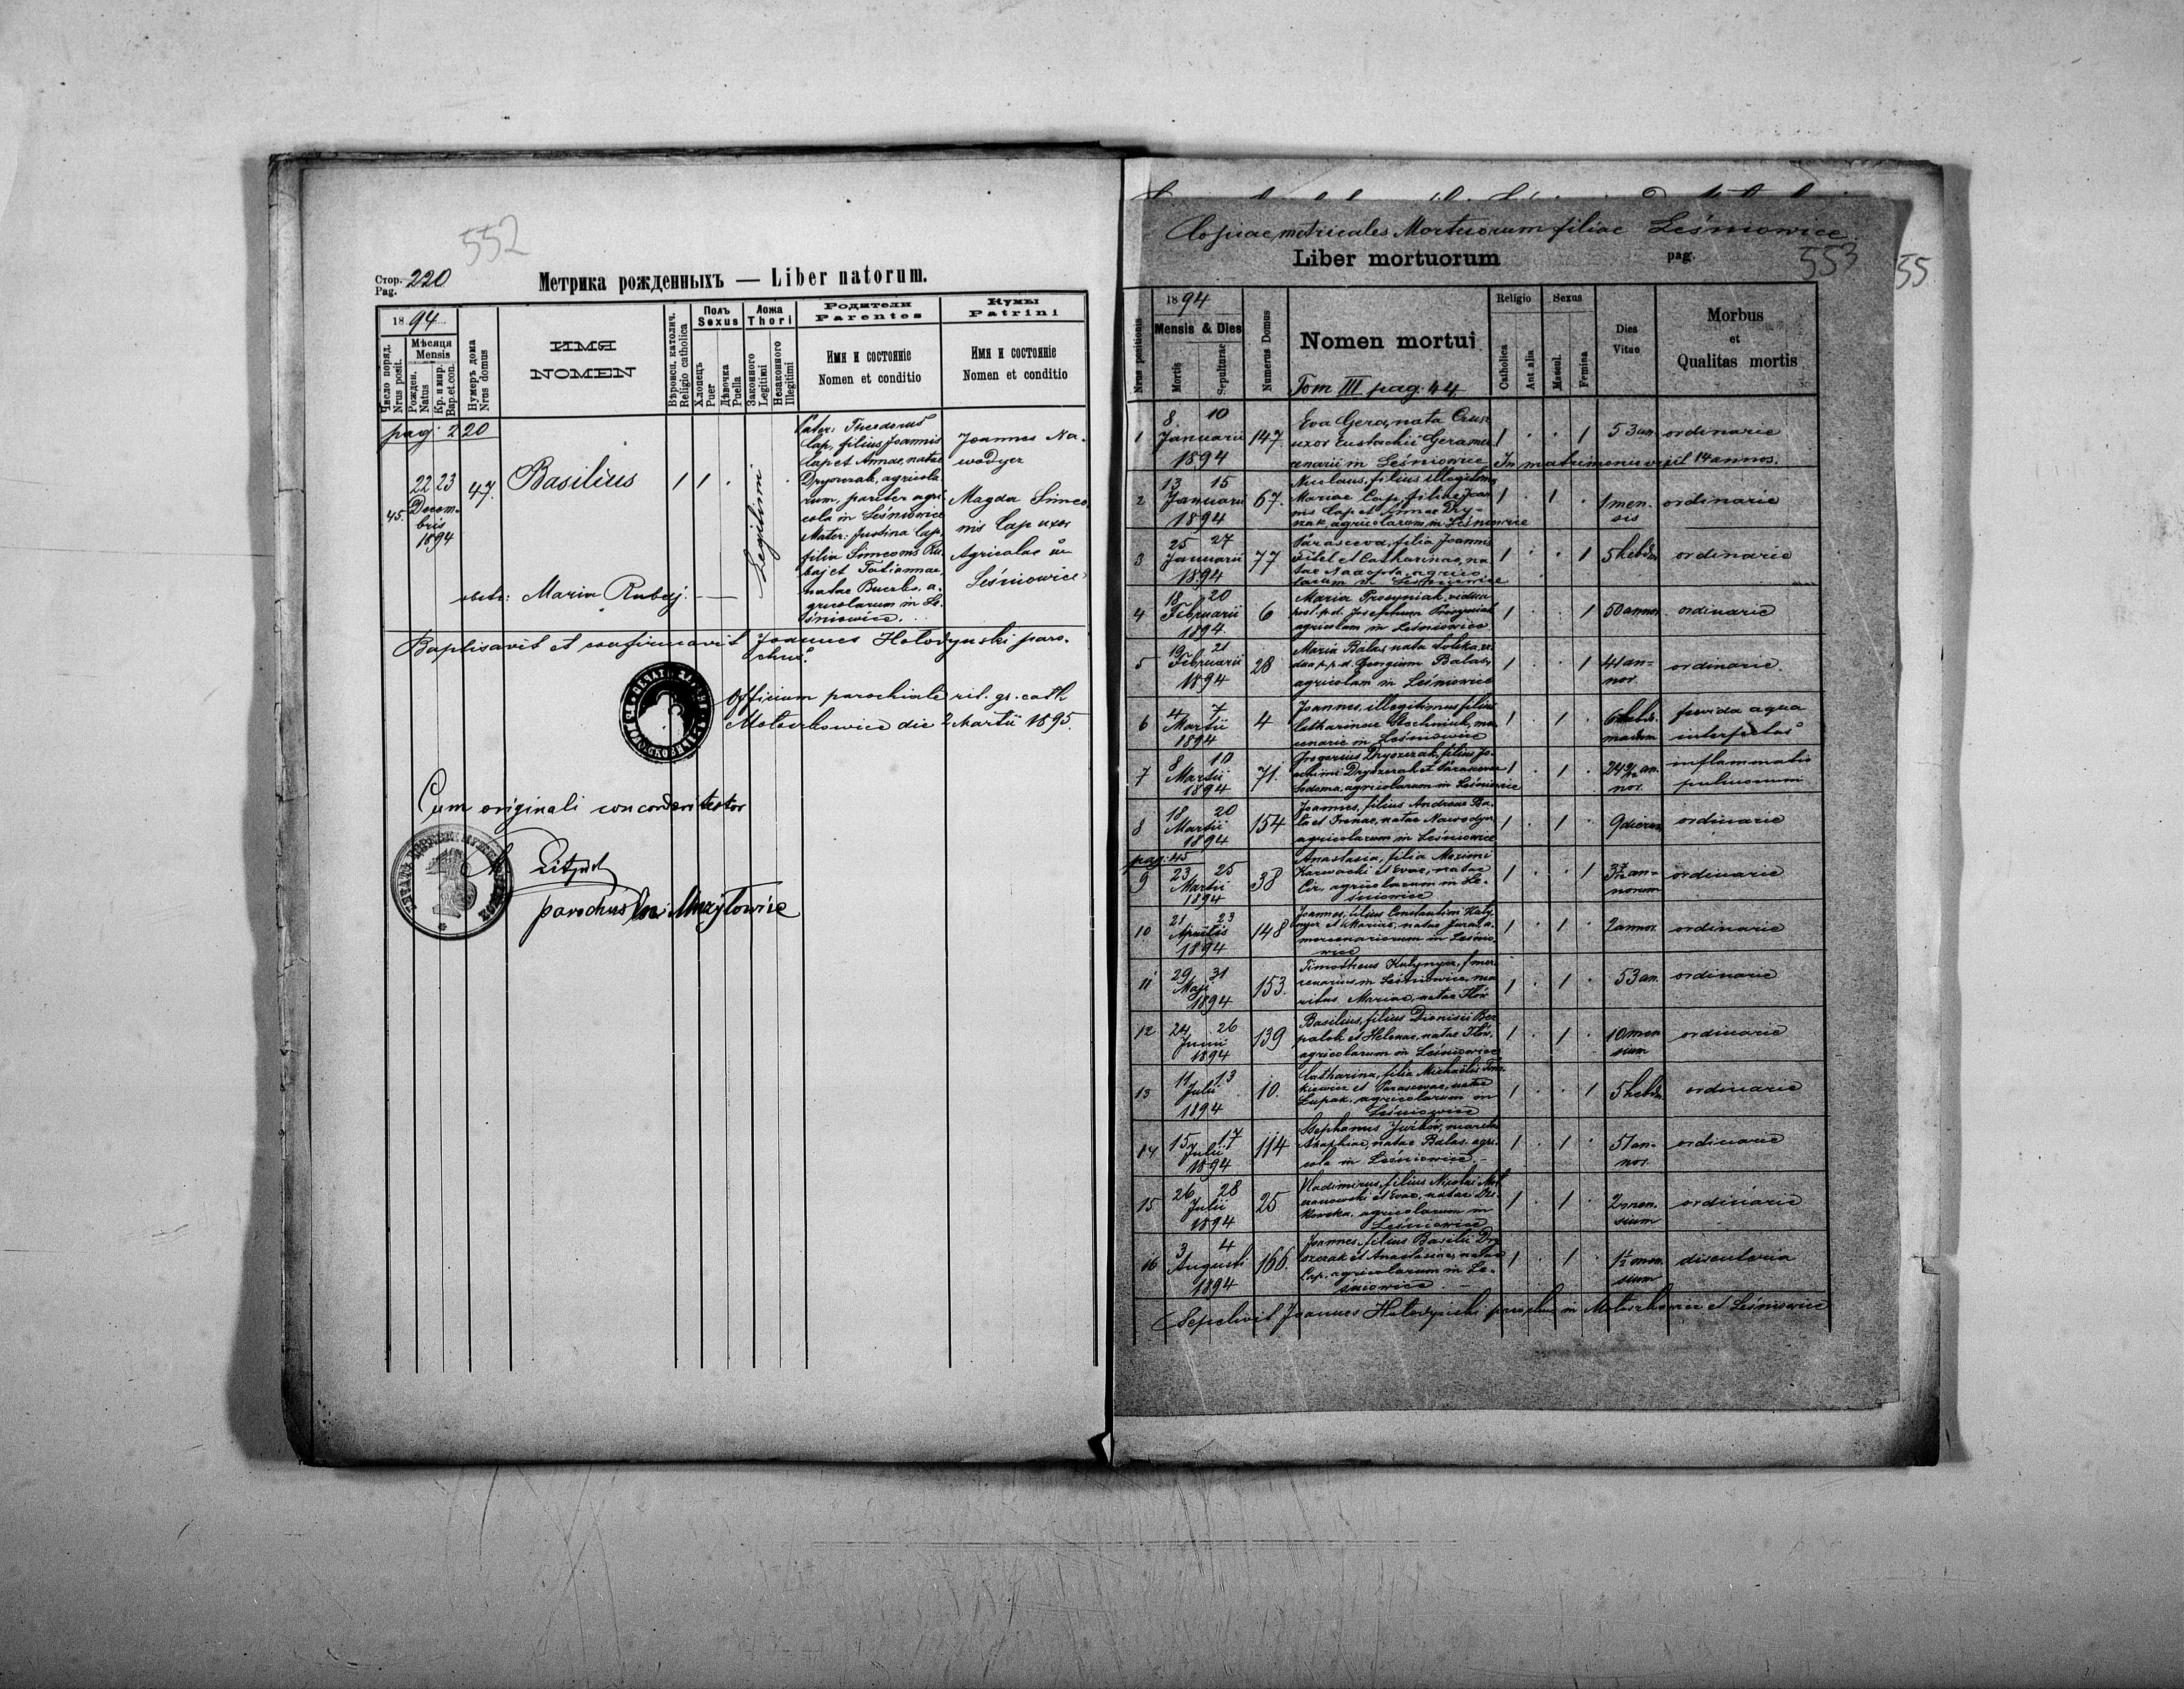 552
Стор. Pag. 220
Метрика рожденныхъ — Liber natorum.
1894
Число поряд. Nrus posit.
Мѣсяця Mensis
Рожден. Natus
Кр. и мир. Bap. et con.
Нумеръ дома Nrus domus
ИМЯ
NOMEN
Вѣроисп. католич. Religio catholica
Полъ Sexus
Хлопецъ Puer
Дѣвочка Puella
Ложа Thori
Законного Legitimi
Незаконного Illegitimi
Родители
Parentes
Имя и состоянiе
Nomen et conditio
Кумы
Patrini
Имя и состоянiе
Nomen et conditio
pag: 220
45. 22 23 Decembris 1894
47.
Basilius
1 1 . Legitimi .
Pater: Theodorus
Cap, filius Joannis
Cap et Annae, natae
agricola
rum, pariter agri
cola in Leśniowice
Mater: Justina Cap,
filia Simeonis Ru
baj et Tatiannae,
natae a
gricolarum in Le
śniowice.
Joannes Na-
wodyer
Magda Simeo
nis Cap uxor
Agricolae in
Leśniowice
obste: Maria Rubaj.
Baptisavit et confirmavit Joannes Hołodyński paro-
chus.
Officium parochiale rit. gr. cath
die 2 Martii 1895.
Cum originali concordari testor
parochus
Copiae metricales Mortuorum filiae Leśniowice
Liber mortuorum pag. 553
55
1894
Nrus positionis
Mensis & Dies
Mortis
Sepulturae
Numerus Domus
Nomen mortui
Tom III pag. 44.
Religio
Catholica
Aut alia
Sexus
Mascul.
Femina
Dies Vitae
Morbus
et
Qualitas mortis
1 8. 10 Januarii 1894 147 1 . . 1 53 an. ordinarie
Eva Gera, nata
uxor Eustachii Gera mer
cenarii in Leśniowice In matrimonio vixit 14 annos.
2 13 15 Januarii 1894 67. 1 . 1 . 1 men sis ordinarie
Nicolaus, filius illegitimus
Mariae Cap, filiae Joan
nis Cap et Annae Dry-
agricolarum in Leśniowice
3 25 27 Januarii 1894 77 1 . . 1 5 hebd. ordinarie
Parasceva, filia Joannis
et Catharinae, na
tae agrico
larum in Leśniowice
4 18 20 Februarii 1894. 6 1 . . 1 50 annor. ordinarie
Maria Prosyniak, vidua
post p.d. Josephum Prosyniak
agricolam in Leśniowice
5 19 21 Februarii 1894 28 1 . . 1 41 an- nor. ordinarie.
Maria Balas, nata vi
dua p.p.d. Georgium Balas,
agricolam in Leśniowice
6 4 7 Martii 1894 4 1 . 1 . 6 hebdo madum fervida aqua interfectus
Joannes, illegitimus filius
Catharinae mer
cenarie in Leśniowice
7 8 10 Martii 1894 71. 1 . 1 . an. nor. inflammatio pulmonum
filius Jo-
achimi et Parascevae
Sodoma, agricolarum in Leśniowice
8 18 20 Martii 1894 154 1 . 1 . 9 dierum ordinarie
Joannes, filius Andreae Ba-
la et Irenae, natae Nawodyer
agricolarum in Leśniowice
pag: 45
9 23 25 Martii 1894 38 1 . . 1 an- norum ordinarie
Anastasia, filia Maximi
Karwacki et Evae, natae
Cir, agricolarum in Le-
śniowice
10 21 23 Aprilis 1894 148 1 . 1 . 2 annor. ordinarie
Joannes, filius Constantini
et Mariae, natae
mercenariorum in Leśnio
wice
11 29 31 Maji 1894 153. 1 . 1 . 53 an. ordinarie
Timotheus mer
cenarius in Leśniowice, ma
ritus Mariae, natae
12 24 26 Junii 1894 139 1 . 1 . 10 men sium ordinarie
Basilius, filius Dionisii Bez
palok et Helenae, natae
agricolarum in Leśniowice
13 11 13 Julii 1894 10. 1 . . 1 5 hebd. ordinarie
Catharina, filia Michaelis
et Parascevae, natae
Łupak, agricolarum in
Leśniowice
14 15 17 Julii 1894 114 1 . 1 . 51 an- nor. ordinarie
Stephanus maritus
Agaphiae, natae Balas, agri-
cola in Leśniowice.
15 26 28 Julii 1894 25 1 . 1 . 2 men. sium ordinarie
Vladimirus, filius Nicolai
et Evae, natae
agricolarum in
Leśniowice
16 3 4 Augusti 1894 166. 1 . 1 . 1½ men sium
Joannes, filius Basilii
et Anastasiae, natae
Cap, agricolarum in Le-
śniowice
Sepelivit Joannes Hołodyński parochus in et Leśniowice